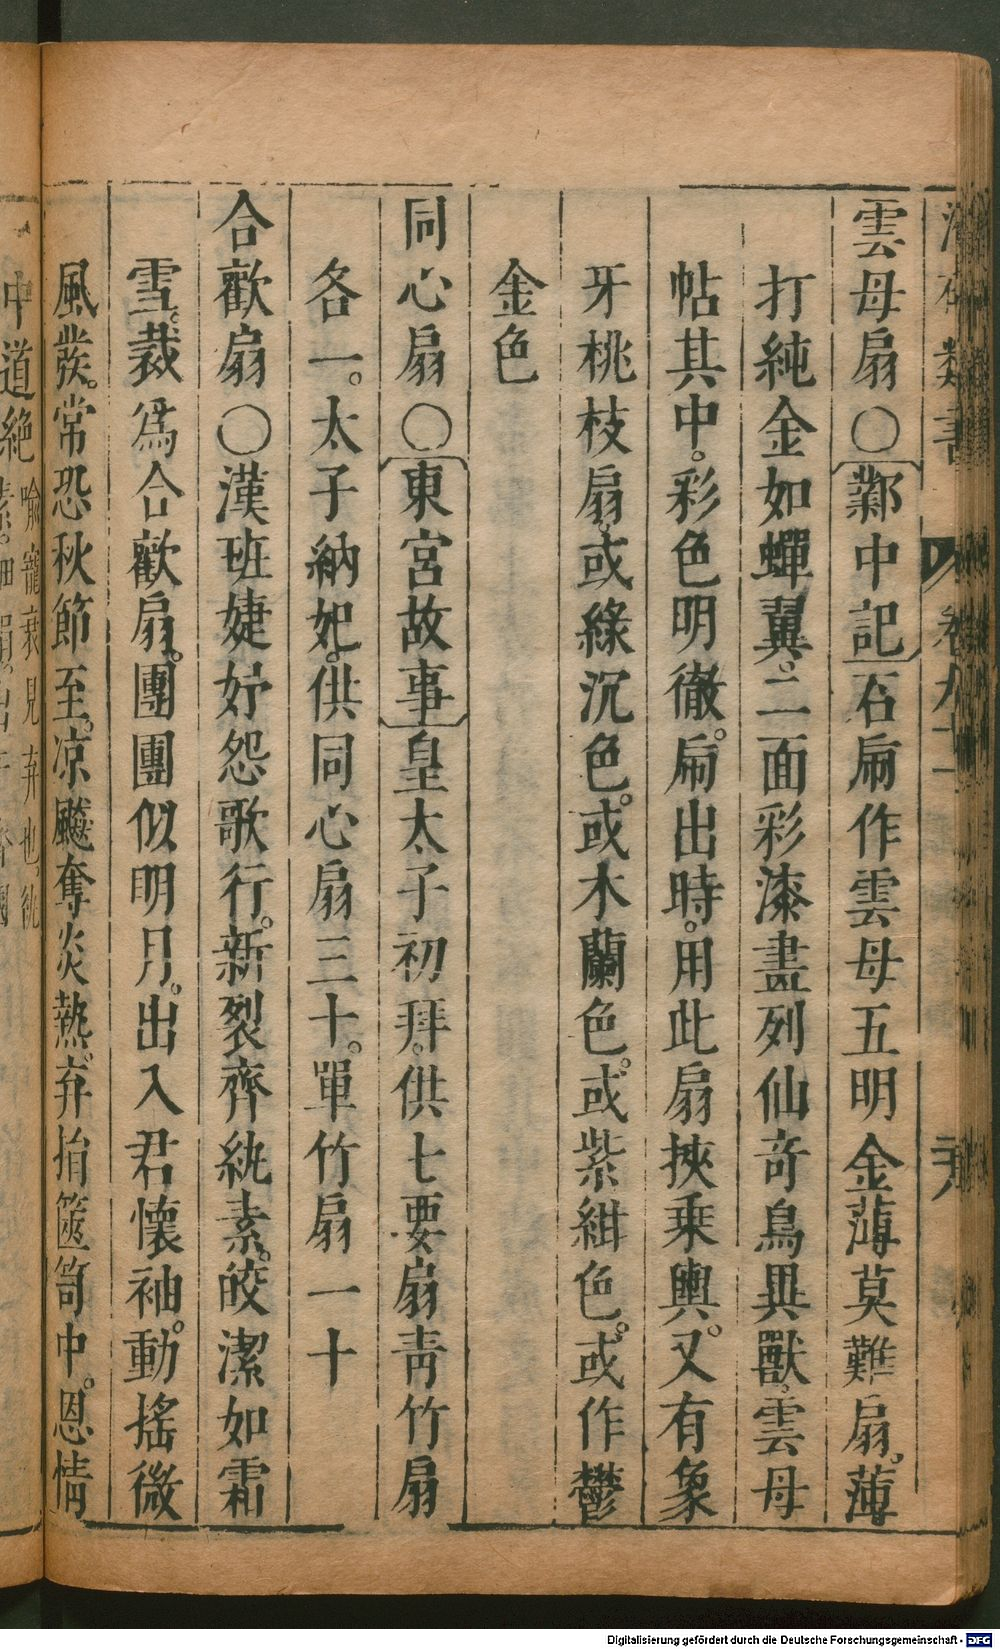 雲母扇○鄴中記石扇作雲母五明金薄莫難扇。薄
打純金如蟬翼。二面彩漆畫列仙奇鳥異獸。雲母
帖其中。彩色明徹。扇出時。用此扇挾乗輿。又有象
牙桃枝扇。或綠沉色。或木蘭色。或紫紺色。或作鬱
金色
同心扇○東宮故事皇太子初拜。供七要扇青竹扇
各一。太子納妃。供同心扇三十。單竹扇一十
合歡扇○漢班婕妤怨歌行。新裂齊紈素。皎潔如霜
雪。裁爲合歡扇。團團似明月。出入君懷袖。動搖微
風發。常恐秋節至。凉飇奪炎熱。弃捐篋笥中。恩情
中道絕喻寵衰見弃也。紈
素。細絹。出于齊國
Digitalisierung gefördert durch die Deutsche Forschungsgemeinschaft - DFG